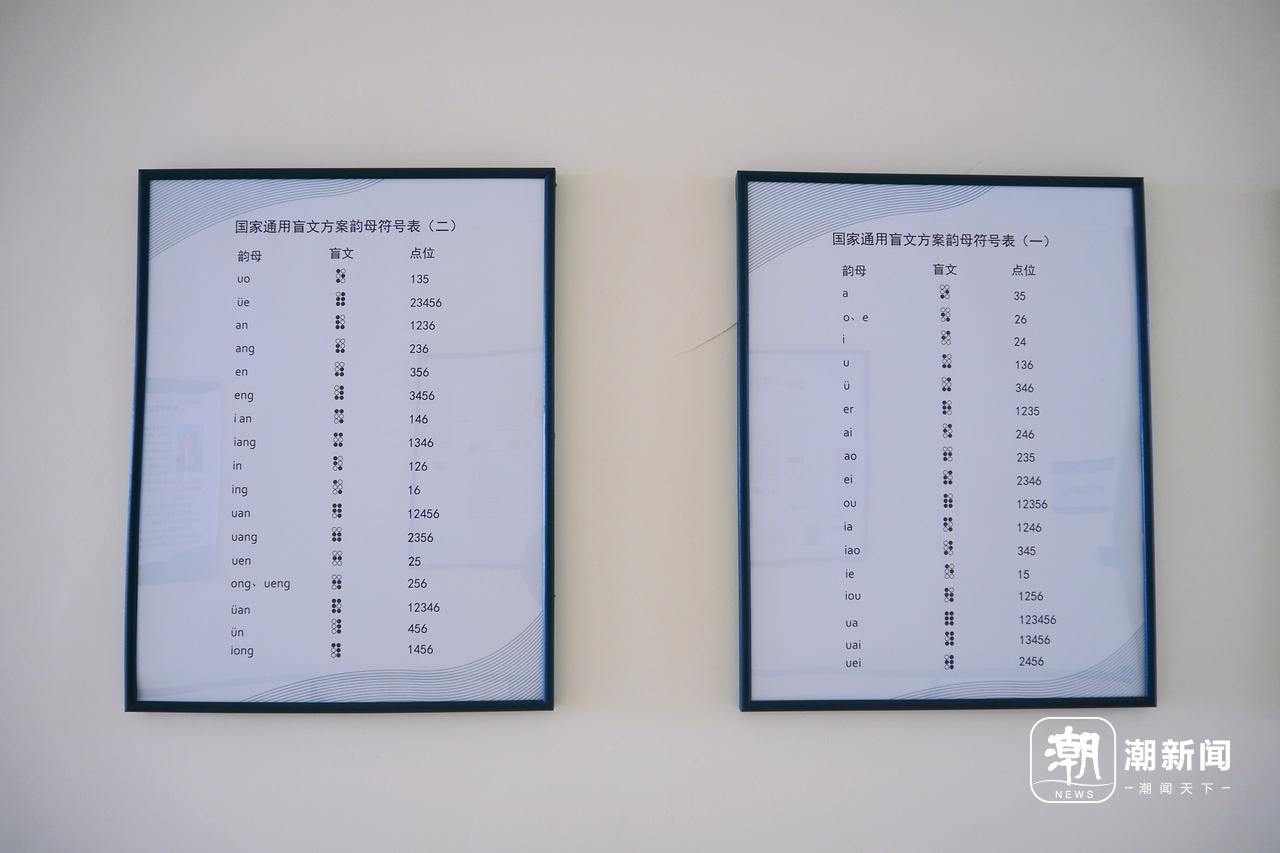 国家通用盲文方案韵母符号表（二）
韵母 盲文 点位
uo ⠕ 135
üe ⠾ 23456
an ⠧ 1236
ang ⠦ 236
en ⠴ 356
eng ⠼ 3456
ian ⠩ 146
iang ⠭ 1346
in ⠣ 126
ing ⠡ 16
uan ⠻ 12456
uang ⠶ 2356
uen ⠒ 25
ong、ueng ⠲ 256
üan ⠯ 12346
ün ⠸ 456
iong ⠹ 1456
国家通用盲文方案韵母符号表（一）
韵母 盲文 点位
a ⠔ 35
o、e ⠢ 26
i ⠊ 24
u ⠥ 136
ü ⠬ 346
er ⠗ 1235
ai ⠪ 246
ao ⠖ 235
ei ⠮ 2346
ou ⠷ 12356
ia ⠫ 1246
iao ⠜ 345
ie ⠑ 15
iou ⠳ 1256
ua ⠿ 123456
uai ⠽ 13456
uei ⠺ 2456
潮 NEWS
潮新闻
潮闻天下